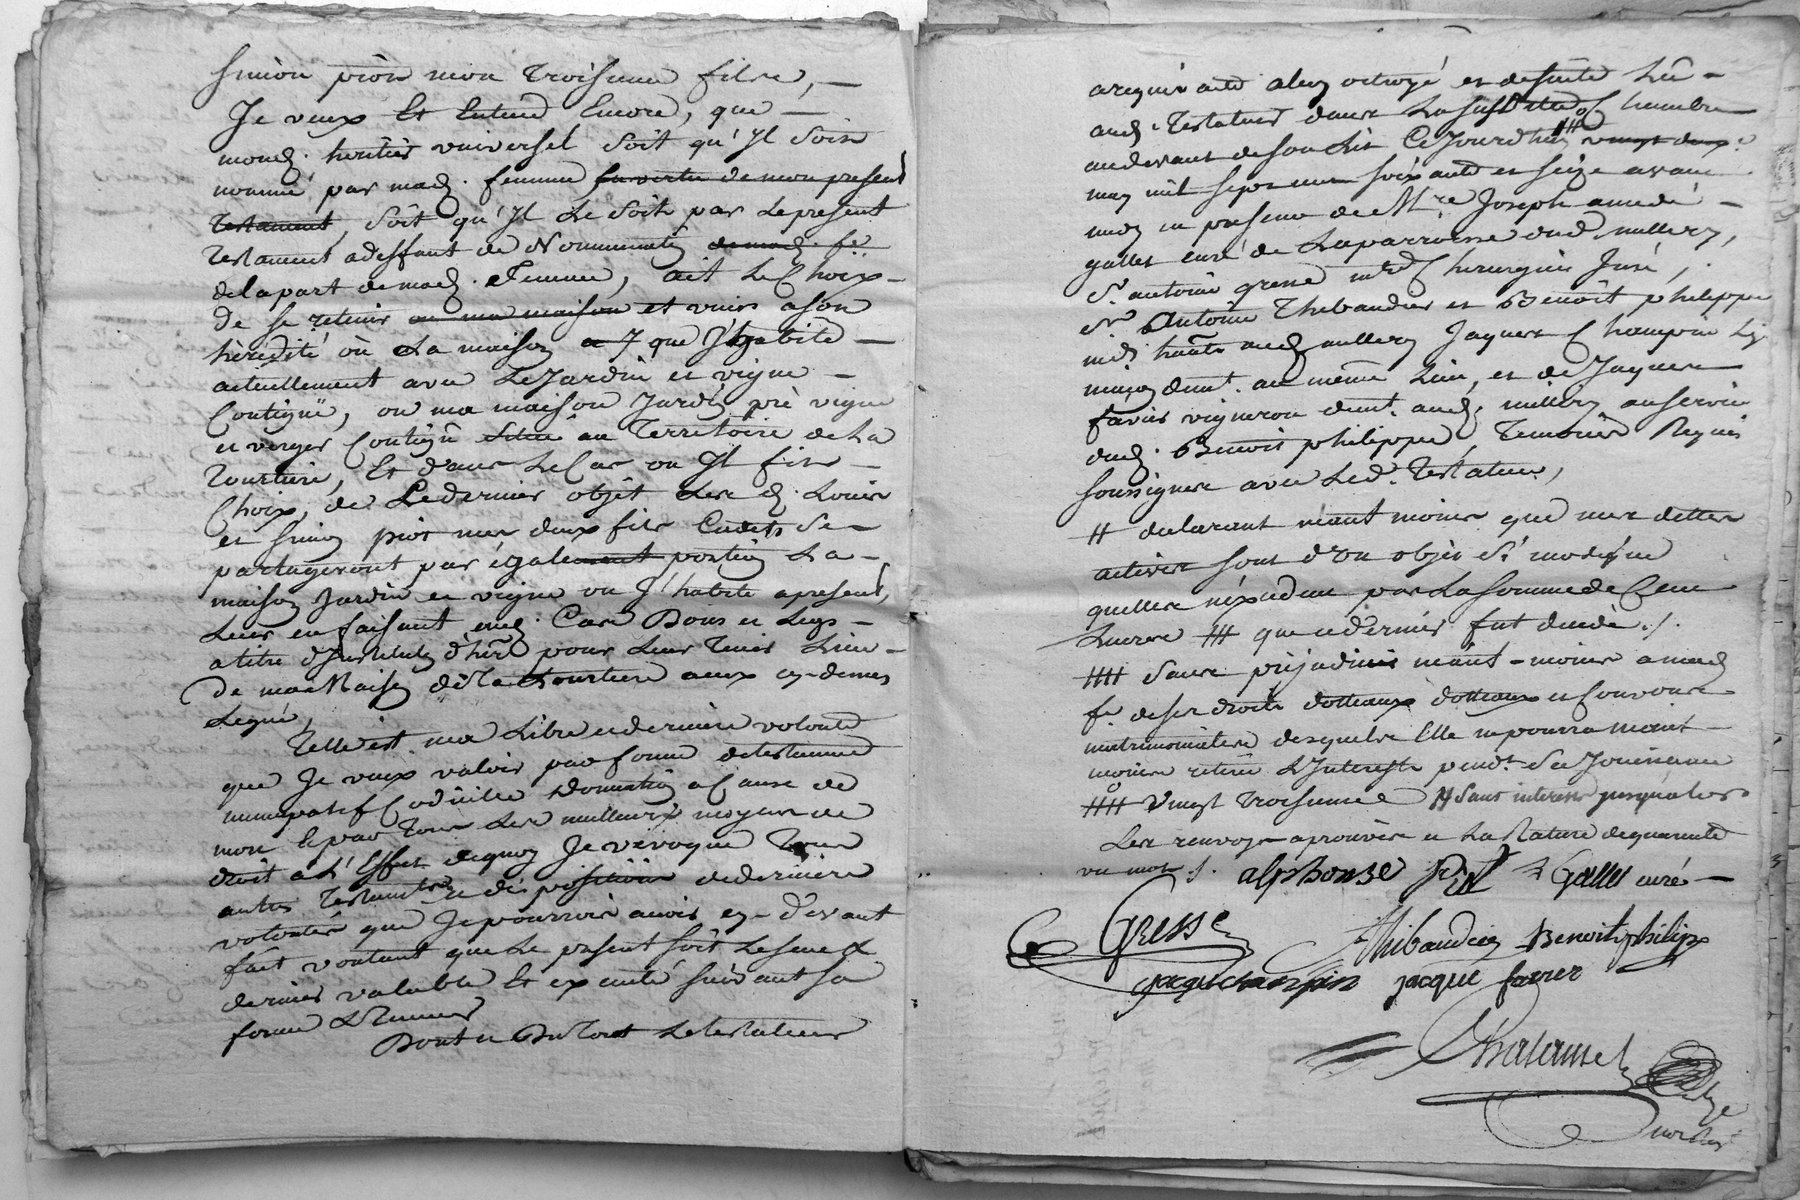 Simon piot mon troisieme fils,
Je veux Et Entend Encore, que
mond. heritier universel soit qu'Il soit
nommé par mad. femme En vertu de mon present
testament, soit qu'Il Le soit par Le present
testament adeffaut de Nomination de mad. fe
delapart de mad. femme, ait Le Choix
de se retenir ou ma maison et unir a son
hérédité où La maison que J'habite
actuellement avec Le Jardin et vigne
Contigüe, ou ma maison Jardin pré vigne
et verger Contigu Situé au Territoire de La
Tourtiere, Et dans Le Cas ou Il fit
Choix, de Ce dernier objet Les d. Louis
et Simon piot mes deux fils Cadets Se
partageront par également portion La
maison Jardin et vigne ou J'habite apresent,
Leur en faisant end. Cas Dons et Legs
atitre d'Institution d'her pour Leur tenir Lieu
de ma Maison de La Tourtiere a eux cy-dernier
Legué,
Telle est ma Libre et derniere volonté
que Je veux valoir par forme de testament
nuncupatif Codicille Donnation a Cause de
mort Et par Tous Les meilleurs moyens de
droit a L'Effet dequoy Je révoque Tous
autres Testaments et dispositions dederniere
volontés que Je pourrois avoir cy-devant
fait voulant que Le present soit Le seul &
dernier valable Et executé suivant sa
forme & Teneur
Dont et Du tout Le testateur
arequis acte aluy octroyé et desuite Lû
aud. Testateur dans La susd. Chambre
audevant de son Lit Cejourdhuy vingt deux
may mil sept cent soixante et seize avant
midy en presence de Mre Joseph amedé
gallet curé de Laparroisse dud. millery,
Sr. antoine gresse md Chirurgien Juré,
Sr. Antoine Thibaudier et Benoit philippe
md. haûts aud. millery Jaques Champin
maçon demt. au même Lieu, et de Jaques
favier vigneron demt. aud. millery au service
dud. Benoit philippe, temoins Requis
soussignes avec Led. Testateur,
# declarant neant moins que mes dettes
actives sont d'un objet Sy modique
quelles n'éxedent pas La somme de Cent
Livres ### que ce dernier fut decedé ./.
#### Sans prejudice neant-moins a mad.
fe. de ses droits dotteaux dotteaux et Convons
matrimoniales desquels Elle ne pourra neant
moins retirer L'Interests pendt. Sa Jouissance
#### Vingt troisieme # Sans interets jusqu'alors
Les renvoys aprouvés et La Rature dequarante
un mots ./. alphonse piot J Gallet curé
Gresse Thibaudier Benoit philipe
jaque champin jacque favier
Chalamel